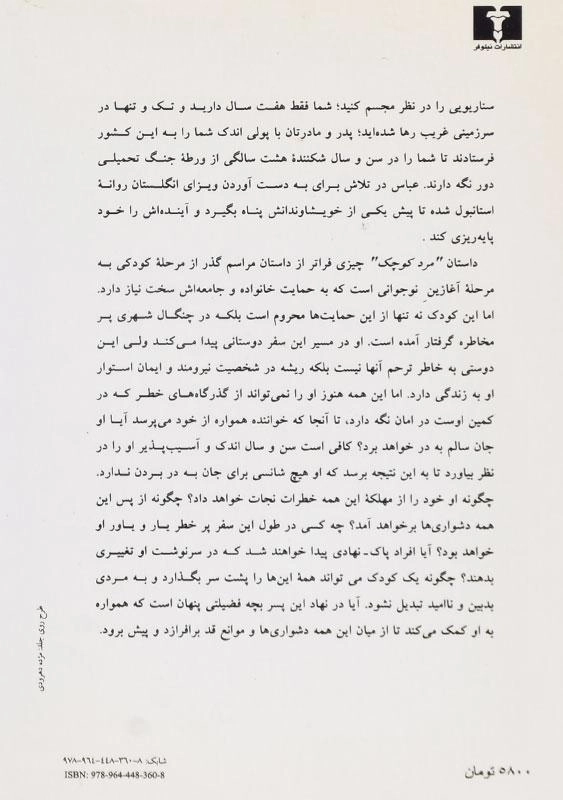 انتشارات نیلوفر
سناریویی را در نظر مجسم کنید؛ شما فقط هفت سال دارید و تک و تنها در
سرزمینی غریب رها شده‌اید؛ پدر و مادرتان با پولی اندک شما را به این کشور
فرستادند تا شما را در سن و سال شکنندهٔ هشت سالگی از ورطهٔ جنگ تحمیلی
دور نگه دارند. عباس در تلاش برای به دست آوردن ویزای انگلستان روانهٔ
استانبول شده تا پیش یکی از خویشاوندانش پناه بگیرد و آینده‌اش را خود
پایه‌ریزی کند .
داستان "مرد کوچک" چیزی فراتر از داستان مراسم گذر از مرحلهٔ کودکی به
مرحلهٔ آغازینِ نوجوانی است که به حمایت خانواده و جامعه‌اش سخت نیاز دارد.
اما این کودک نه تنها از این حمایت‌ها محروم است بلکه در چنگال شهری پر
مخاطره گرفتار آمده است. او در مسیر این سفر دوستانی پیدا می‌کند ولی این
دوستی به خاطر ترحم آنها نیست بلکه ریشه در شخصیت نیرومند و ایمان استوار
او به زندگی دارد. اما این همه هنوز او را نمی‌تواند از گذرگاه‌های خطر که در
کمین اوست در امان نگه دارد، تا آنجا که خواننده همواره از خود می‌پرسد آیا او
جان سالم به در خواهد برد؟ کافی است سن و سال اندک و آسیب‌پذیر او را در
نظر بیاورد تا به این نتیجه برسد که او هیچ شانسی برای جان به در بردن ندارد.
چگونه او خود را از مهلکهٔ این همه خطرات نجات خواهد داد؟ چگونه از پس این
همه دشواری‌ها برخواهد آمد؟ چه کسی در طول این سفر پر خطر یار و یاور او
خواهد بود؟ آیا افراد پاک‌ـ‌نهادی پیدا خواهند شد که در سرنوشت او تغییری
بدهند؟ چگونه یک کودک می تواند همهٔ این‌ها را پشت سر بگذارد و به مردی
بدبین و ناامید تبدیل نشود. آیا در نهاد این پسر بچه فضیلتی پنهان است که همواره
به او کمک می‌کند تا از میان این همه دشواری‌ها و موانع قد برافرازد و پیش برود.
طرح روی جلد: مژده دهرودی
شابک: ۸-۳۶۰-۴۴۸-۹۶۴-۹۷۸
ISBN: 978-964-448-360-8
۵۸۰۰ تومان